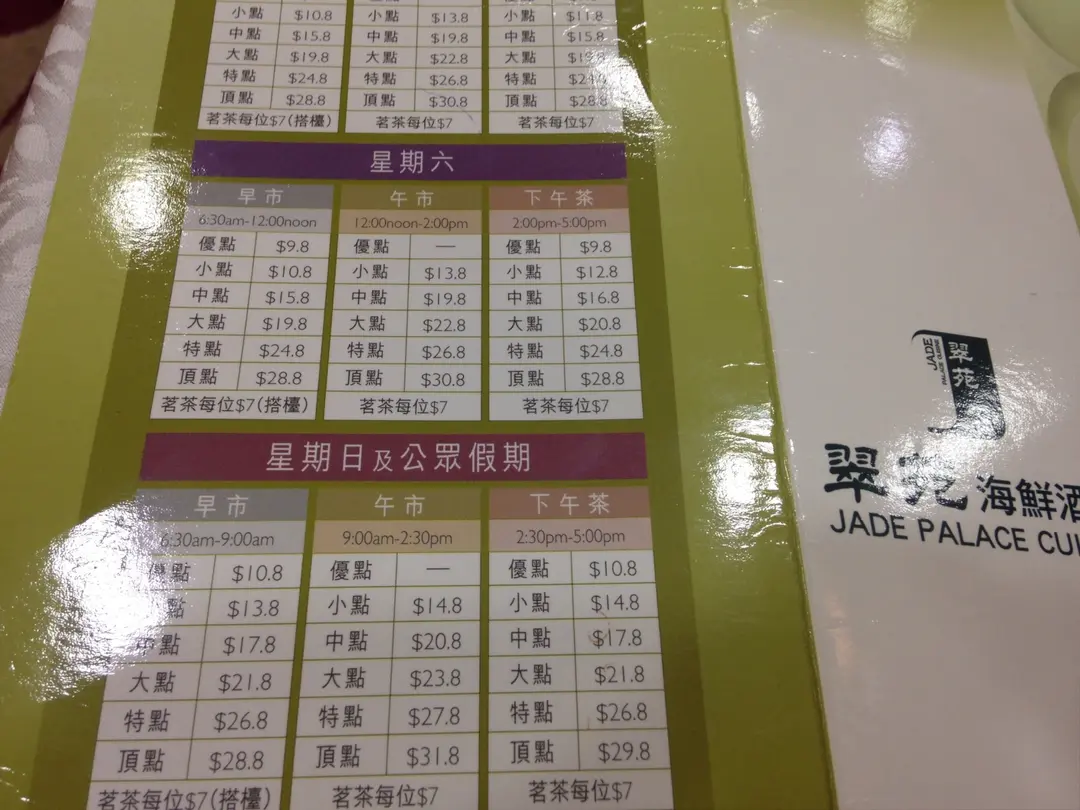 小點 $10.8 小點 $13.8 小點 $11.8
中點 $15.8 中點 $19.8 中點 $15.8
大點 $19.8 大點 $22.8 大點
特點 $24.8 特點 $26.8 特點
頂點 $28.8 頂點 $30.8 頂點 $28.8
茗茶每位$7(搭檯) 茗茶每位$7 茗茶每位$7
星期六
早市 午市 下午茶
6:30am-12:00noon 12:00noon-2:00pm 2:00pm-5:00pm
優點 $9.8 優點 — 優點 $9.8
小點 $10.8 小點 $13.8 小點 $12.8
中點 $15.8 中點 $19.8 中點 $16.8
大點 $19.8 大點 $22.8 大點 $20.8
特點 $24.8 特點 $26.8 特點 $24.8
頂點 $28.8 頂點 $30.8 頂點 $28.8
茗茶每位$7(搭檯) 茗茶每位$7 茗茶每位$7
星期日及公眾假期
早市 午市 下午茶
6:30am-9:00am 9:00am-2:30pm 2:30pm-5:00pm
優點 $10.8 優點 — 優點 $10.8
點 $13.8 小點 $14.8 小點 $14.8
中點 $17.8 中點 $20.8 中點 $17.8
大點 $21.8 大點 $23.8 大點 $21.8
特點 $26.8 特點 $27.8 特點 $26.8
頂點 $28.8 頂點 $31.8 頂點 $29.8
茗茶每位$7(搭檯) 茗茶每位$7 茗茶每位$7
JADE
PALACE CUISINE
翠苑
翠苑 海鮮酒
JADE PALACE CUI